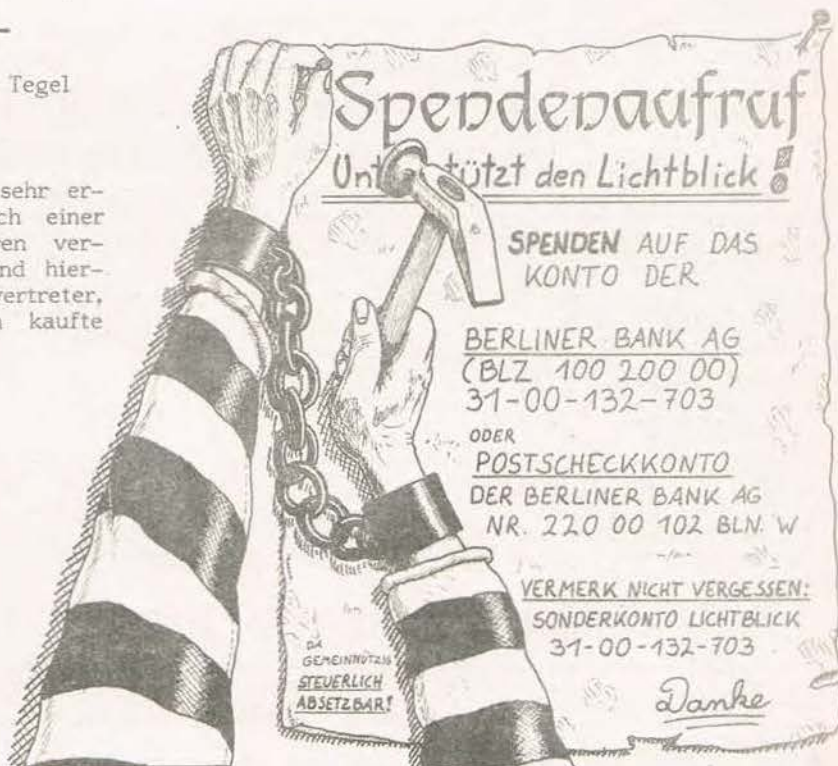 Tegel
sehr er-
ch einer
ren ver-
nd hier-
vertreter,
kaufte
Spendenaufruf
Unterstützt den Lichtblick!
SPENDEN AUF DAS
KONTO DER
BERLINER BANK AG
(BLZ 100 200 00)
31-00-132-703
ODER
POSTSCHECKKONTO
DER BERLINER BANK AG
NR. 220 00 102 BLN. W
VERMERK NICHT VERGESSEN:
SONDERKONTO LICHTBLICK
31-00-132-703
DA
GEMEINNÜTZIG
STEUERLICH
ABSETZBAR!
Danke